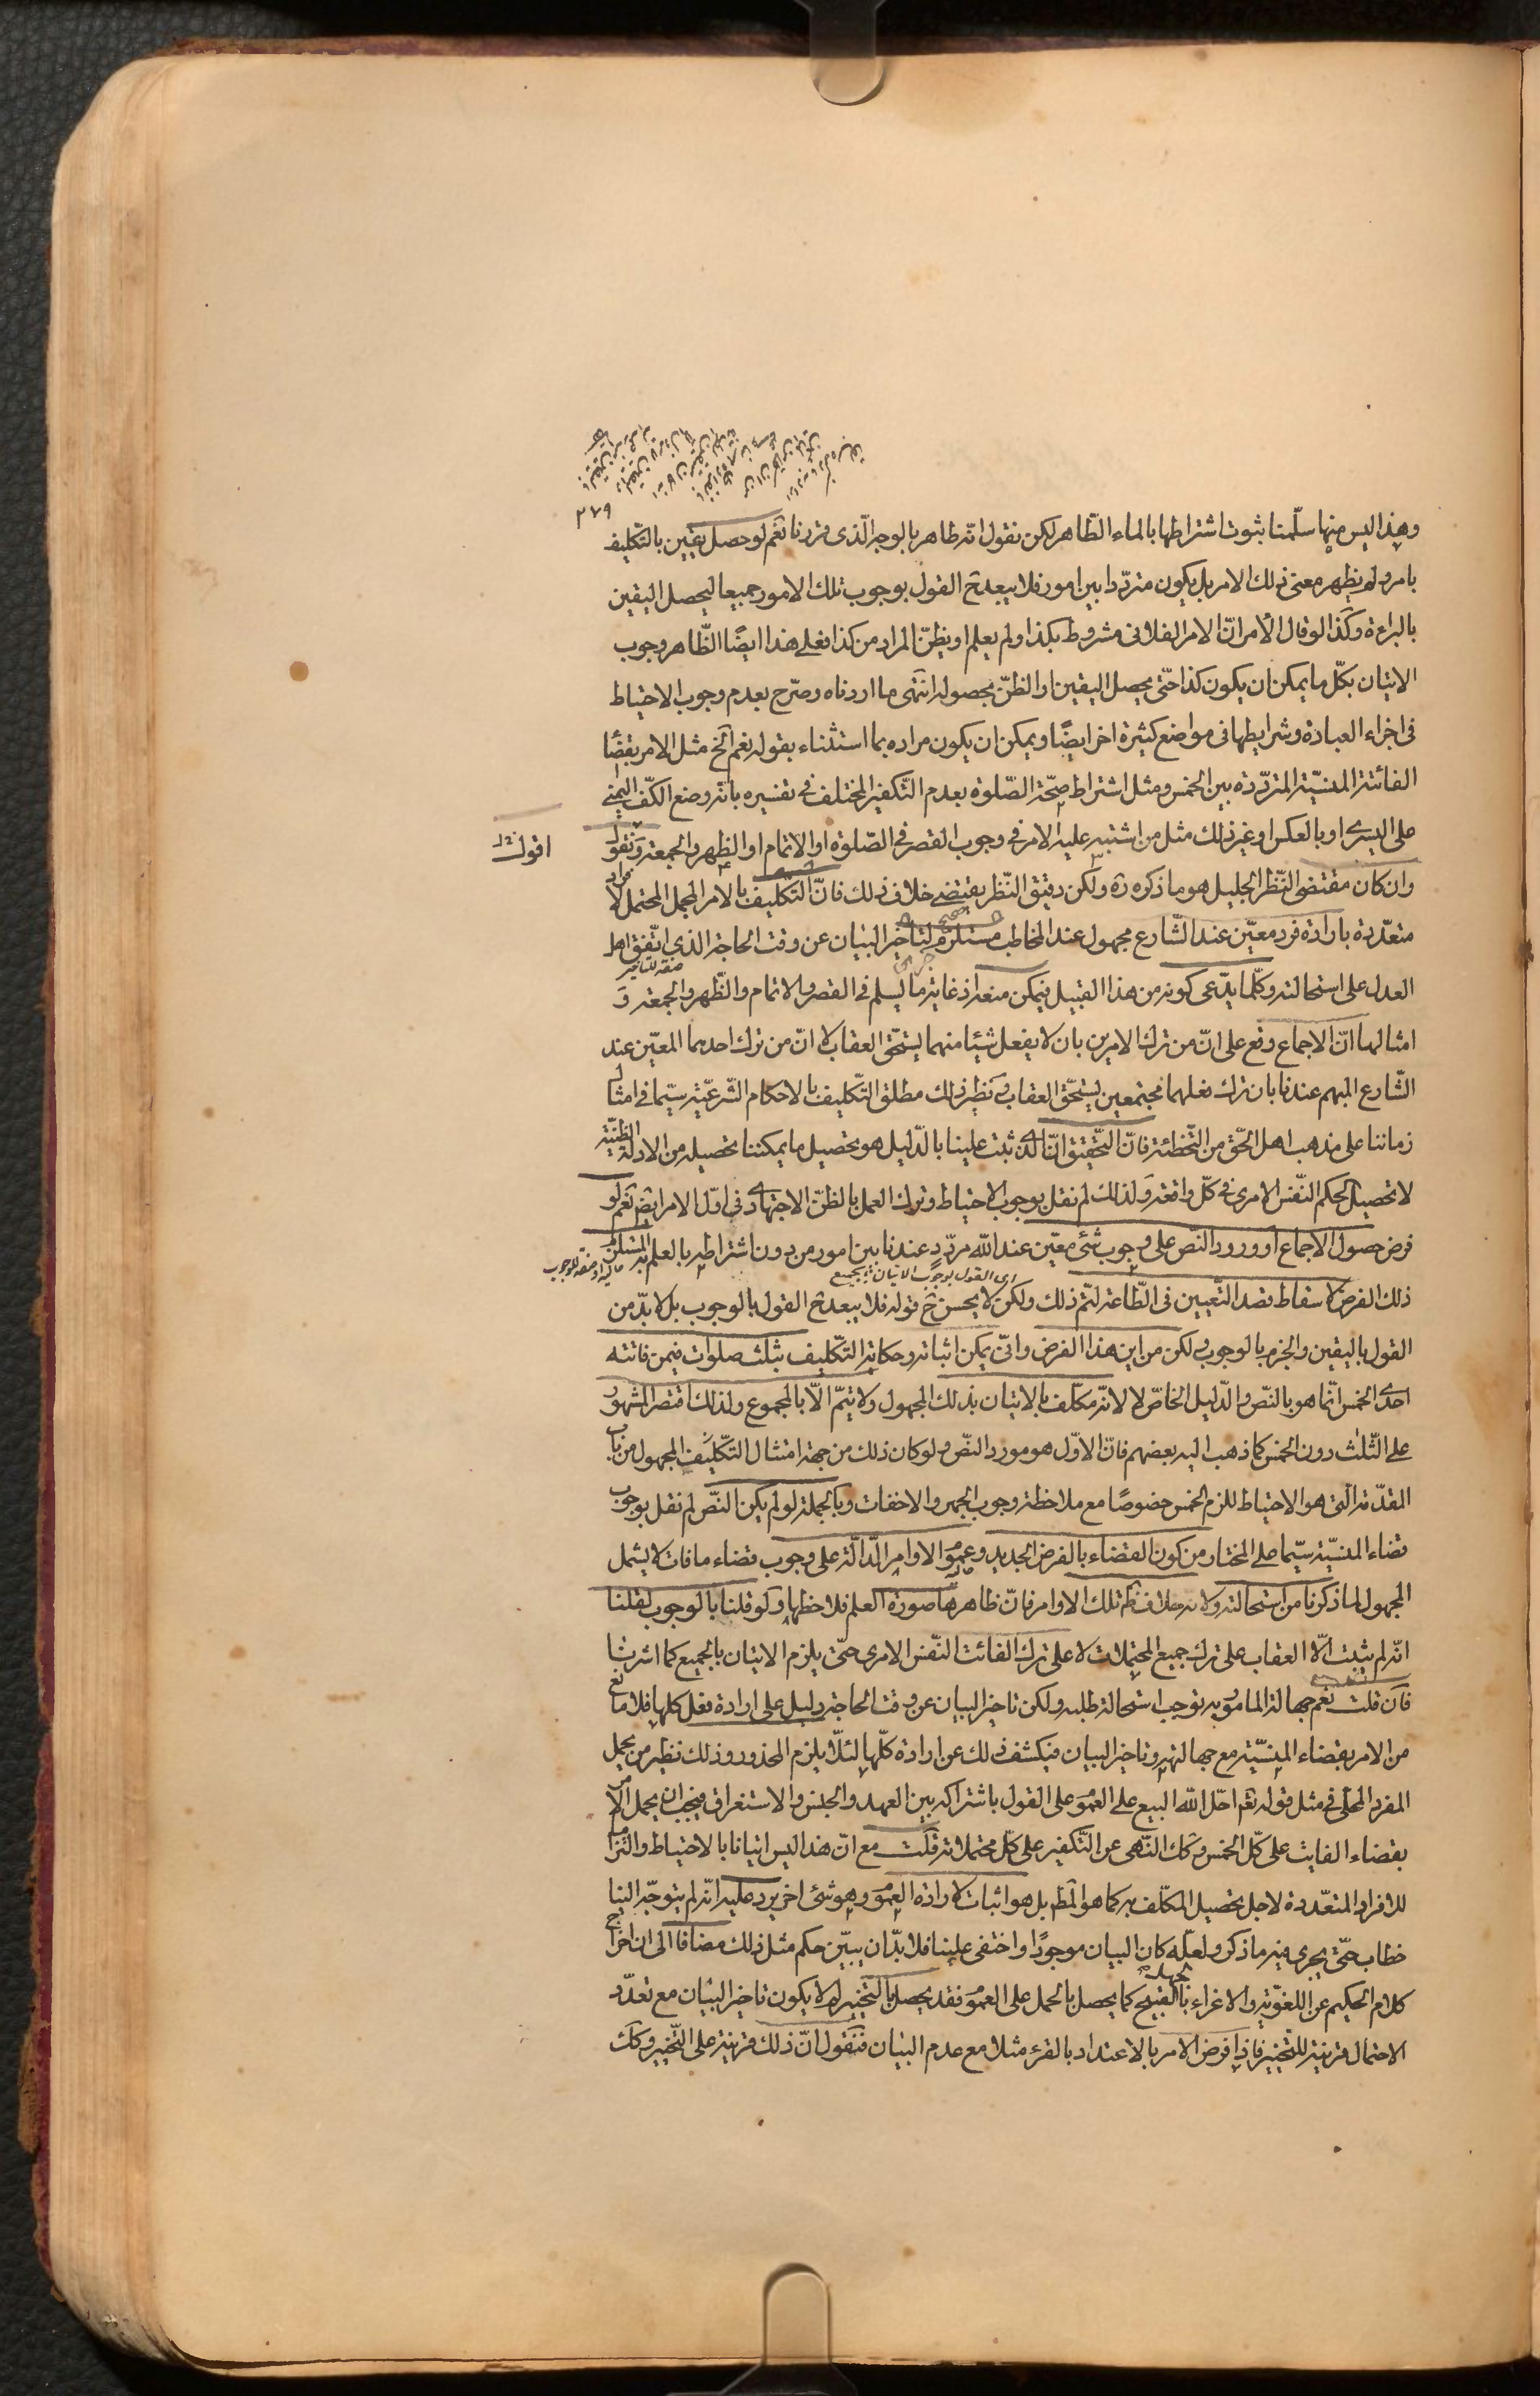 ٢٧٩
وهذا ليس منها سلّمنا ثبوت اشتراطها بالماء الطّاهر لكن نقول انّه طاهر بالوجه الّذى قررنا نعم لو حصل يقين بالتّكليف
بامر ولم يظهر معنى ذلك الامر بل يكون متردّدا بين امور فلا يبعد ح القول بوجوب تلك الامور جميعا ليحصل اليقين
بالبراءة وكذا لو قال الأمر انّ الامر الفلانى مشروط بكذا ولم يعلم او يظنّ المراد من كذا فعلى هذا ايضًا الظّاهر وجوب
الاتيان بكلّ ما يمكن ان يكون كذا حتّى يحصل اليقين او الظنّ بحصوله انتهى ما اردناه وصرّح بعدم وجوب الاحتياط
فى اجزاء العبادة وشرايطها فى مواضع كثيرة اخر ايضًا ويمكن ان يكون مراده بما استثناء بقوله نعم الخ مثل الامر بقضا
الفائتة المنسيّة المتردّدة بين الخمس ومثل اشتراط صحّة الصّلوة بعدم التّكفير المختلف فى تفسيره بانّه وضع الكفّ اليمنى
على اليسرى او بالعكس او غير ذلك مثل من اشتبه عليه الامر فى وجوب القصر فى الصّلوة او الاتمام او الظهر والجمعة ونقول
اقول
وان كان مقتضى النّظر الجليل هو ما ذكره ره ولكن دقيق النّظر يقتضى خلاف ذلك فانّ التّكليف بالامر المجمل المحتمل لافراد
متعدّدة بارادة فرد معيّن عند الشّارع مجهول عند المخاطب مستلزم لتاخير البيان عن وقت الحاجة الذى اتّفق اهل
العدل على استحالته وكلّما يدّعى كونه من هذا القبيل فيمكن منعه اذ غاية ما يسلم فى القصر والاتمام والظّهر والجمعة و
امثالها انّ الاجماع وقع على انّ من ترك الامرين بان لا يفعل شيئا منهما يستحقّ العقاب لا انّ من ترك احدهما المعيّن عند
الشّارع المبهم عندنا بان ترك فعلهما مجتمعين يستحقّ العقاب ونظير ذلك مطلق التّكليف بالاحكام الشّرعيّة سيّما فى امثال
زماننا على مذهب اهل الحّق من التّخطئة فانّ التّحقيق انّ الذى ثبت علينا بالدّليل هو تحصيل ما يمكننا تحصيله من الادلّة الظنّيّة
لا تحصيل الحكم النّفس الامرى فى كلّ واقعة ولذلك لم نقل بوجوب الاحتياط وترك العمل بالظنّ الاجتهادى فى اوّل الامر ايضا نعم لو
فرض حصول الاجماع او ورود النّص على وجوب شئ معيّن عند اللّه مردّد عندنا بين امور من دون اشتراطه بالعلم به المستلزم
ذلك الفرض لاسقاط قصد التّعيين فى الطّاعة لتمّ ذلك ولكن لا يحسن ح قوله فلا يبعد ح القول بالوجوب بل لا بدّ من
اى القول بوجوب الاتيان بالجميع
القول باليقين والجزم بالوجوب ولكن من اين هذا الفرض وانّى يمكن اثباته وحكاية التّكليف بثلث صلوات فيمن فاتته
احدى الخمس انّما هو بالنصّ والدّليل الخاصّ لا لانّه مكلّف بالاتيان بذلك المجهول ولا يتمّ الّا بالمجموع ولذلك اقتصر المشهور
على الثّلث دون الخمس كما ذهب اليه بعضهم فانّ الاوّل هو مورد النصّ ولو كان ذلك من جهة امتثال التّكليف المجهول من باب
المقدّمة الّتى هو الاحتياط للزم الخمس خصوصًا مع ملاحظة وجوب الجهر والاخفات وبالجملة لو لم يكن النصّ لم نقل بوجوب
قضاء المنسيّة سيّما على المختار من كون القضاء بالفرض الجديد وعموم الاوامر الدّالّة على وجوب قضاء ما فات لا يشمل
المجهول لما ذكرنا من استحالته ولانه خلاف ظم تلك الاوامر فانّ ظاهرها صورة العلم فلاحظها ولو قلنا بالوجوب لقلنا
انّه لم يثبت الّا العقاب على ترك جميع المحتملات لا على ترك الفائت النّفس الامرى حتّى يلزم الاتيان بالجميع كما اشرنا
فان قلت نعم جهالة المامور به توجب استحالة طلبه ولكن تاخير البيان عن وقت الحاجة دليل على ارادة فعل كلها فلا مانع
من الامر بقضاء المنسيّة مع جهالتها وتاخير البيان فيكشف ذلك عن ارادة كلّها لئلّا يلزم المحذور وذلك نظير من يحمل
المفرد المحلّى فى مثل قوله تع احلّ اللّه البيع على العموم على القول باشتراكه بين العهد والجنس والاستغراق فيجب ان يحمل الامر
بقضاء الفايت على كلّ الخمس وكك النّهى عن التّكفير على كلّ محتملاته قلت مع انّ هذا ليس اتيانا بالاحتياط والتزاما
للافراد المتعّددة لاجل تحصيل المكلّف به كما هو المط بل هو اثبات لارادة العموم وهو شئ اخر يرد عليه انّه لم يتوجّه الينا
خطاب حتّى يجرى فيه ما ذكر ولعلّه كان البيان موجودًا واختفى علينا فلا بدّ ان يبيّن حكم مثل ذلك مضافا الى ان اخراج
كلام الحكيم عن اللغويّة والاغراء بالقبيح كما يحصل بالحمل على العموم فقد يحصل بالتّخيير لم لا يكون تاخير البيان مع تعدّد
الاحتمال قرينة للتّخيير فاذا فرض الامر بالاعتداد بالقرء مثلا مع عدم البيان فنقول انّ ذلك قرينة على التّخيير وكك